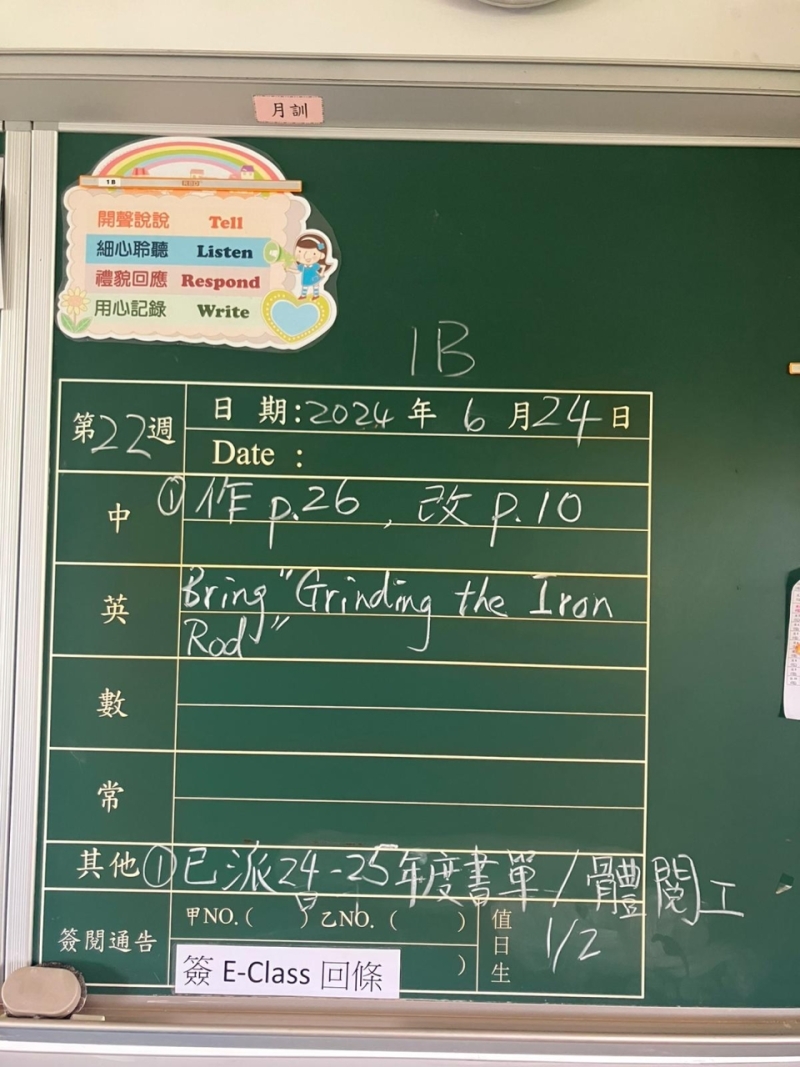 月訓
1B
開聲說說 Tell
細心聆聽 Listen
禮貌回應 Respond
用心記錄 Write
1B
第22週
日期:2024年6月24日
Date :
中 ①作p.26, 改p.10
英 Bring "Grinding the Iron
Rod"
數
常
其他 ①已派24-25年度書單/體閱工
簽閱通告 甲NO.( ) 乙NO.( )
)
簽 E-Class 回條
值日生 1/2